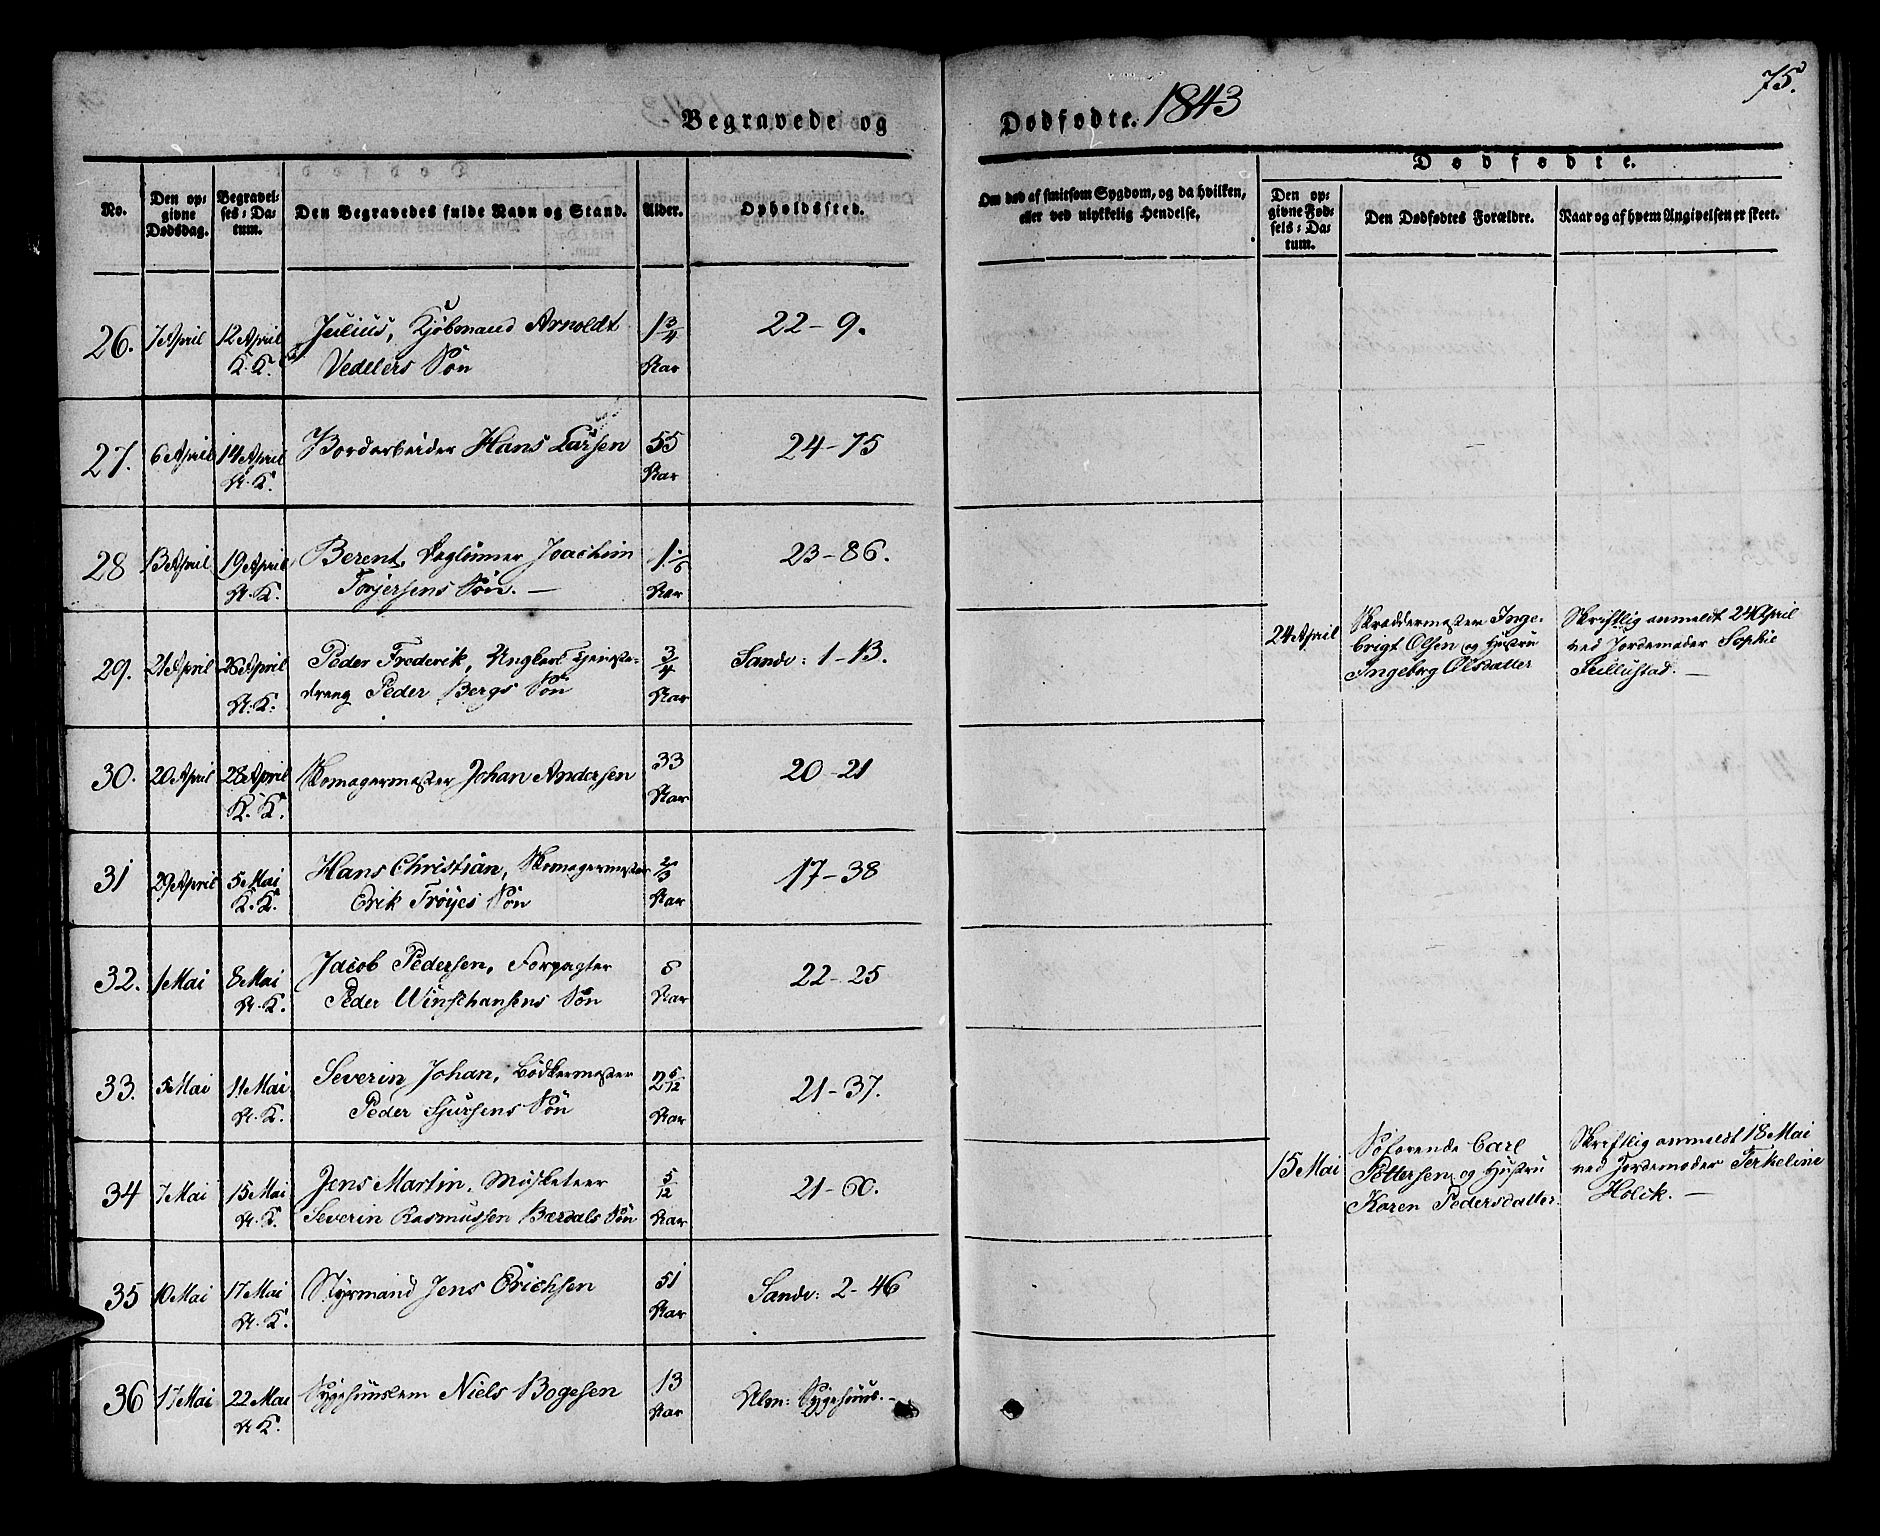 75.
Begravede og Dødfødte. 1843
Dødfødte.
No.
Den opgivne Dødsdag.
Begravelses-Datum.
Den Begravedes fulde Navn og Stand.
Alder.
Opholdssted.
Om død af smitsom Sygdom, og da hvilken,
eller ved ulykkelig Hendelse,
Den opgivne Fødsels-Datum.
Den Dødfødtes Forældre.
Naar og af hvem Angivelsen er skeet.
26. 7 April 12 April Julius, Kjøbmand Arnoldt 1 3/4 22-9.
K. K. Vedelers Søn Aar
27. 6 April 14 April Bordarbeider Hans Larsen 55 24-75
N. K. Aar
28 13 April 19 April Berent, Daglønner Joachim 1 1/6 23-86.
N. K. Torjersens Søn. — Aar
29. 21 April 26 April Peder Frederik, Tjeneste- 3/4 Sandv: 1-13.
N. K. dreng Peder Bergs Søn Aar
24 April Skræddermester Inge- Skriftlig anmeldt 24 April
brigt Olsen og Hustru ved Jordemoder Sophie
Ingeborg Olsdatter
30. 20 April 28 April Skomagermester Johan Andersen 33 20-21
K. K. Aar
31 29 April 5 Mai Hans Christian, Skomagermester 2/3 17-38
K. K. Erik Trøyes Søn Aar
32. 1 Mai 8 Mai Jacob Pedersen, Forpagter 6 22-25
N. K. Peder Winschansens Søn Aar
33. 5 Mai 11 Mai Severin Johan, Bødkermester 2 5/12 21-37.
N. K. Peder Sjursens Søn Aar
34 7 Mai 15 Mai Jens Martin, Musketeer 5/12 21-60.
N. K. Severin Rasmussen Bærdals Søn Aar
15 Mai Søfarende Carl Skriftlig anmeldt 18 Mai
Pettersen og Hustru ved Jordemoder Terkeline
Karen Pedersdatter. Holck. —
35 10 Mai 17 Mai Styrmand Jens Erichsen 51 Sandv: 2-46
N. K. Aar
36 17 Mai 22 Mai Sygehuuslem Niels Bogesen 13 Alm: Sygehuus. —
N. K. Aar